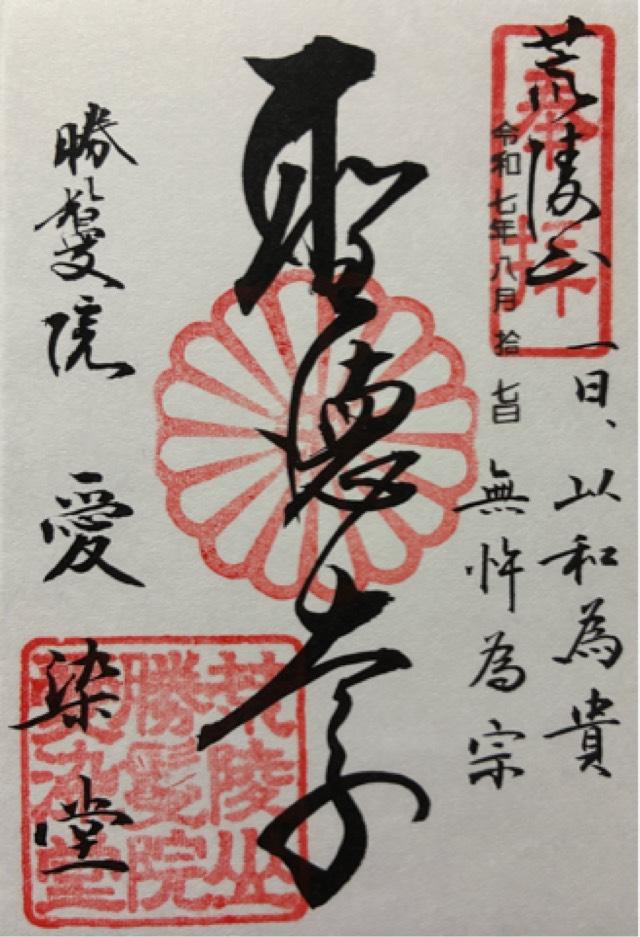 荒陵山
奉拝
令和七年八月拾七日
一日、以和為貴
無忤為宗
聖徳太子
勝鬘院
愛染堂
荒陵山
勝鬘院
愛染堂